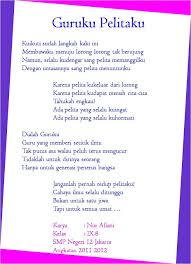 Guruku Pelitaku
Kuikuti sudah langkah kaki ini
Membawaku menuju lorong lorong tak berujung
Namun, selalu kudengar sang pelita memanggilku
Dengan untaiannya sang pelita menuntunku
Karena pelita kekeluar dari lorong
Karena pelita kudapat meraih cita cita
Tahukah engkau!
Ada pelita yang selalu kukagai
Ada pelita yang selalu kuhormati
Dialah Guruku
Guru yang memberi setitik ilmu
Tak putus asa walau pelih terus mengucur
Tidaklah untuk dirinya seorang
Hanya untuk generasi penerus bangsa
Janganlah pernah redup pelitaku!
Cahaya ilmu selalu ditunggu
Bukan untuk satu jiwa
Tapi untuk semua umat ....
Karya : Nur Afiani
Kelas : IX.8
SMP Negeri 12 Jakarta
Angkatan 2011 2012